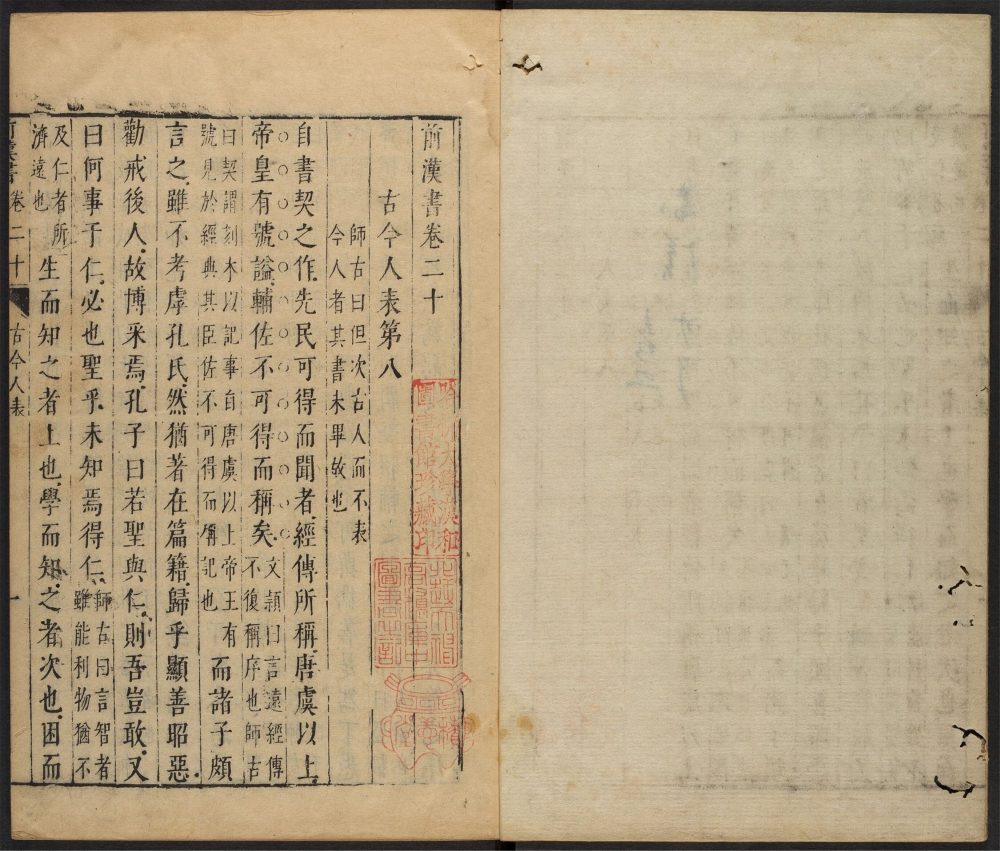 前漢書卷二十
古今人表第八
師古曰但次古人而不表
今人者其書未畢故也
自書契之作先民可得而聞者經傳所稱唐虞以上
帝皇有號謚輔佐不可得而稱矣
文頴曰言遠經傳
不復稱序也師古
曰契謂刻木以記事自唐虞以上帝王有
號見於經典其臣佐不可得而稱記也
而諸子頗
言之雖不考虖孔氏然猶著在篇籍歸乎顯善昭惡
勸戒後人故博采焉孔子曰若聖與仁則吾豈敢又
曰何事于仁必也聖乎未知焉得仁
師古曰言智者
雖能利物猶不
及仁者所
濟遠也
生而知之者上也學而知之者次也困而
前漢書 卷二十 古今人表 一
哈佛大學漢和
圖書館珍藏印